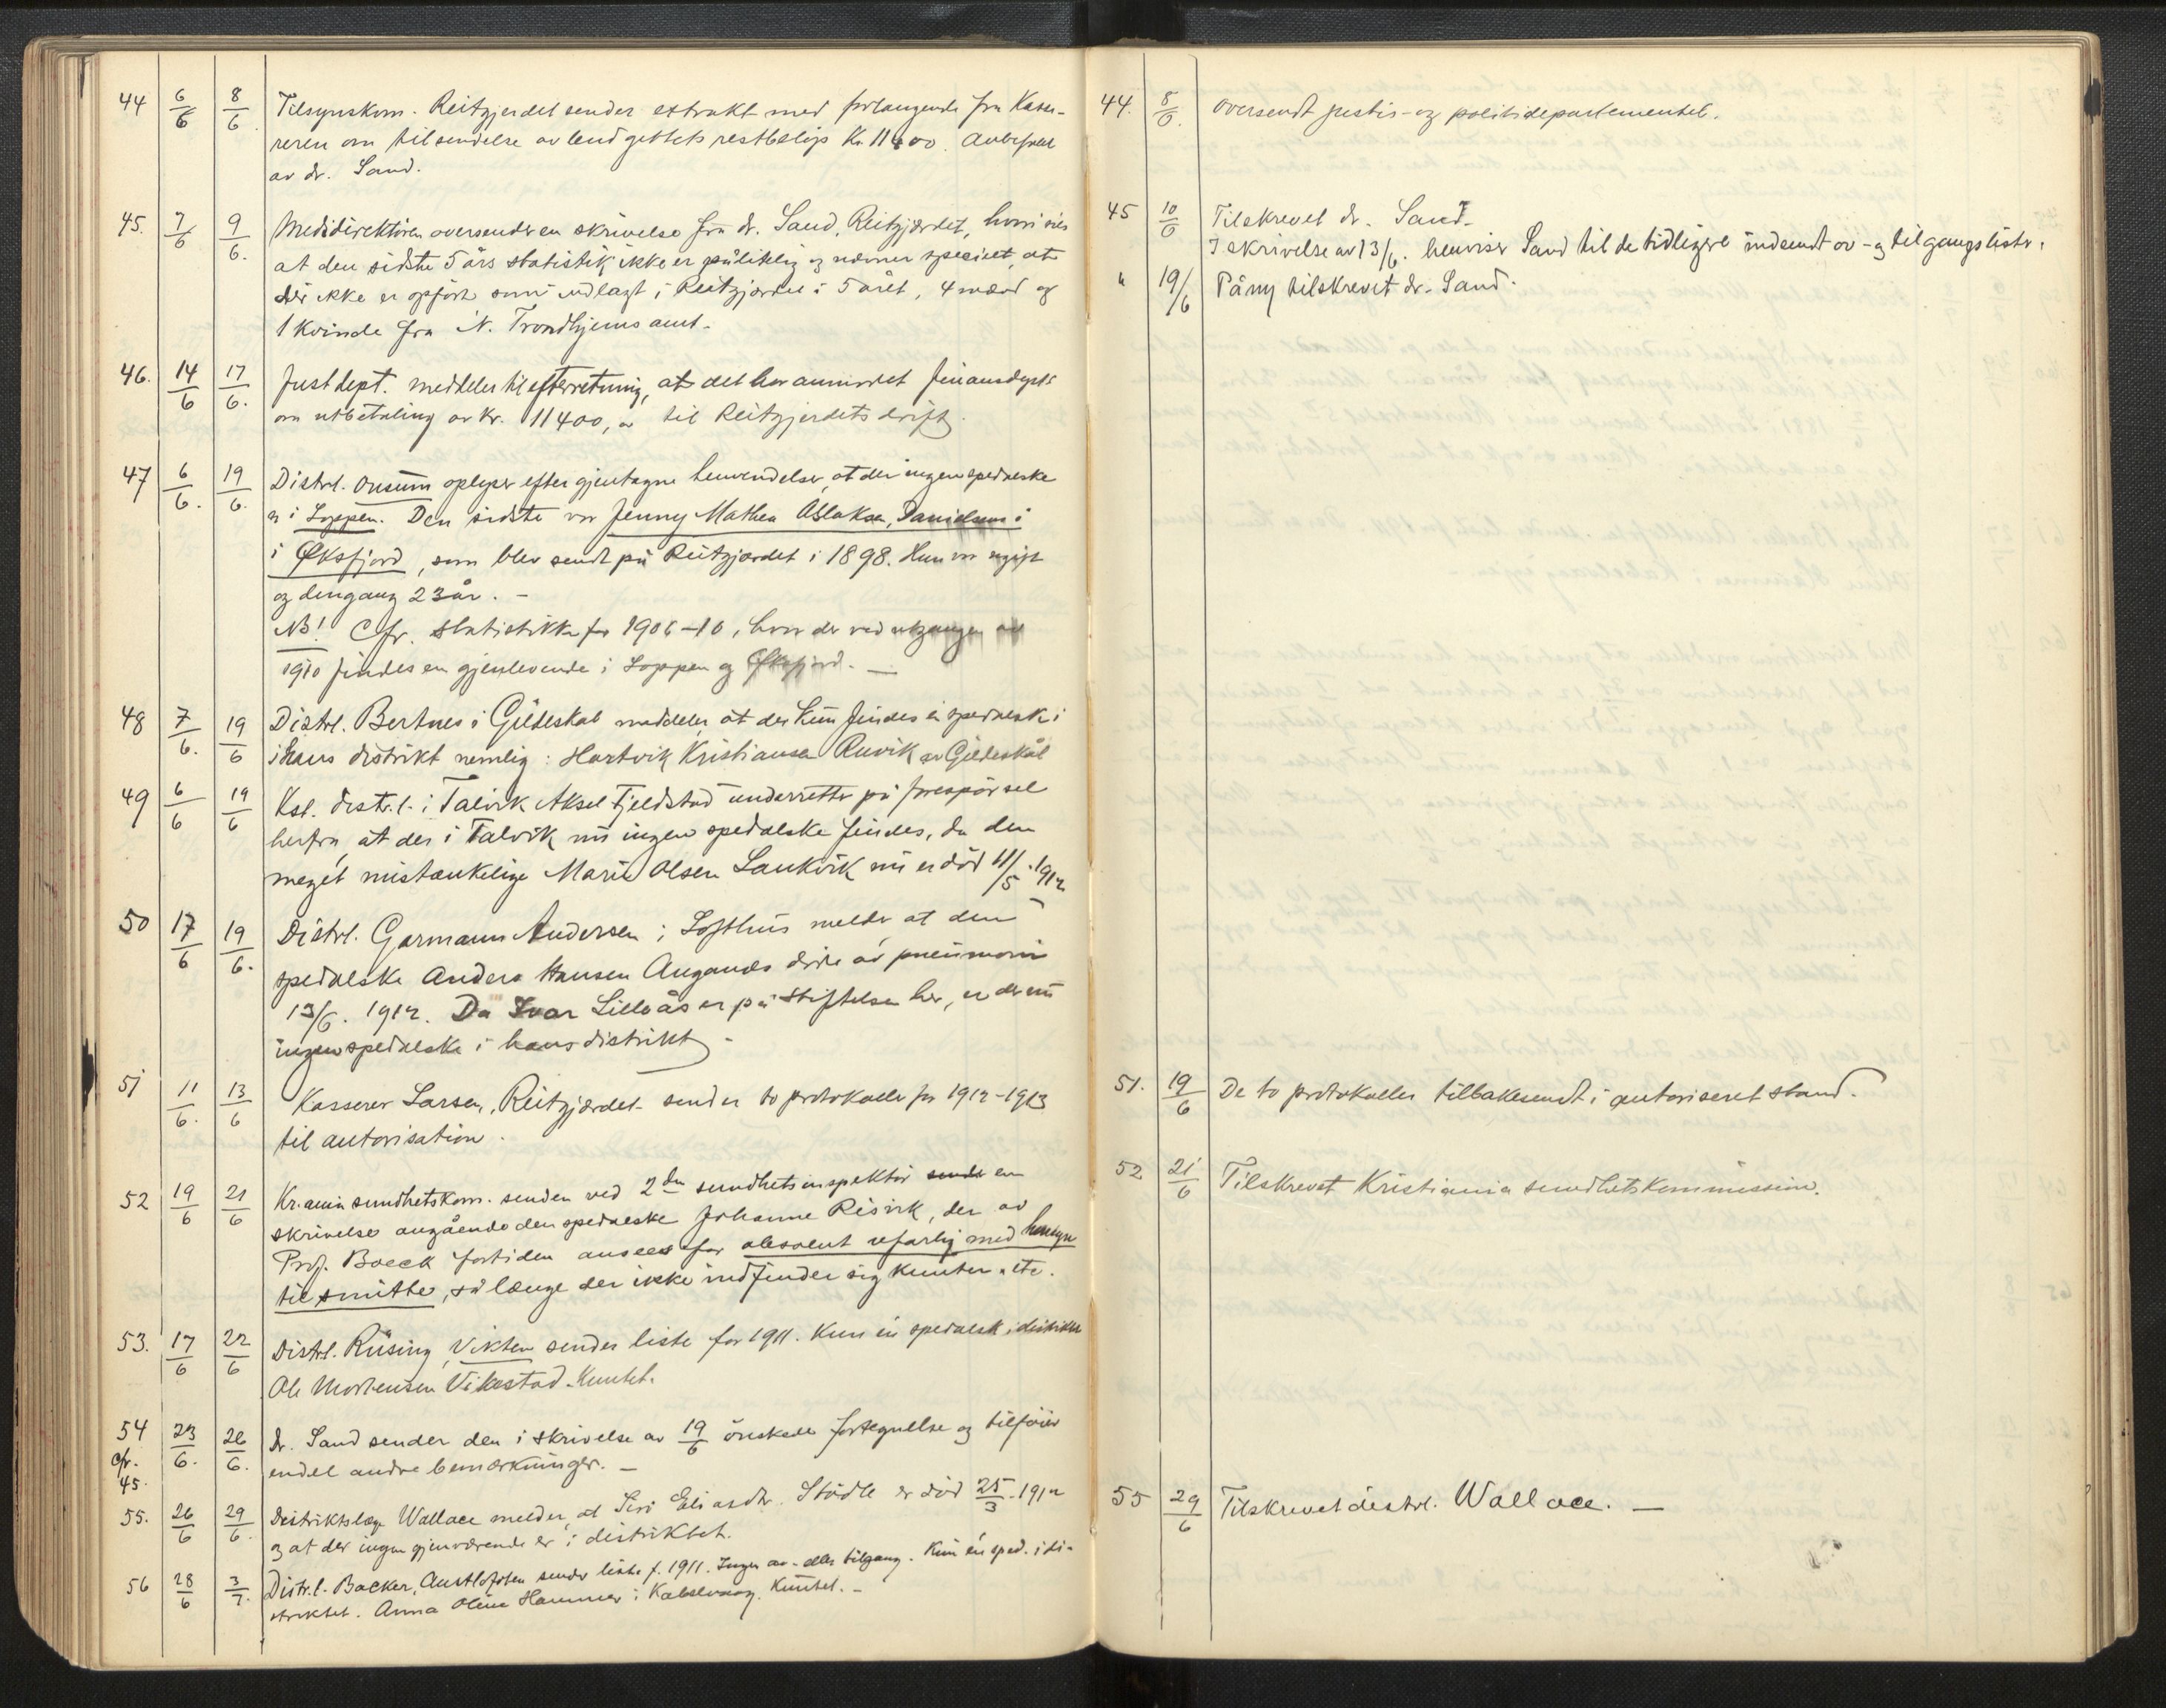 44 6/6 8/6. Tilsynskom. Reitgjerdet sender extrakt med forlangende fra Kasse-
reren om tilsendelse av budgettets restbeløp Kr. 11400. Anbefalet
av dr. Sand.
45. 7/6 9/6. Medicidirektøren oversender en skrivelse fra dr. Sand, Reitgjærdet, hvori sies
at den sidste 5 års statistik ikke er pålitelig og nævner specielt, at
der ikke er opført som indlagt i Reitgjærdet i 5 året, 4 mænd og
1 kvinde fra N. Trondhjems amt.
46. 14/6 17/6. Justdept. meddeler til efterretning, at det har anmodet finansdept.
om utbetaling av kr. 11400, til Reitgjerdets drift.
47 6/6. 19/6. Distrl. Onsum oplyser efter gjentagne henvendelser, at der ingen spedalske
er i Loppen. Den sidste var Jenny Mathea Aslaksen, Danielsen i
i Øksfjord, som blev sendt på Reitgjærdet i 1898. Hun var ugift
og dengang 23 år. –
NB! Cfr. statistikken for 1906–10, hvor der ved utgangen av
1910 findes en gjenlevende i Loppen og Øksfjord. —
48 7/6. 19/6 Distrl. Bertnes i Gildeskål meddeler, at der kun findes én spedalsk i
i hans distrikt nemlig: Hartvik Kristiansen Ruvik av Gildeskål
49 6/6 19/6 Kst. distr.l. i Talvik Aksel Fjeldstad underretter på forespörsel
herfra, at der i Talvik nu ingen spedalske findes, da den
meget mistænkelige Marie Olsen Lankvik nu er död 11/5. 1912
50 17/6 19/6. Distrl. Garmann Andersen i Lofthus melder at den
spedalske Anders Hansen Augands döde av pneumoni
13/6. 1912. Da Ivar Lilleås er på Stiftelsen her, er der nu
ingen spedalske i hans distrikt.
51 11/6. 13/6 Kasserer Larsen, Reitgjærdet sender to protokoller for 1912–1913
til autorisation.
52 19/6 21/6 Kr.ania sundhetskom. sender ved 2den sundhetsinspektör sender en
skrivelse angående den spedalske Johanne Risvik, der av
Prof. Boeck fortiden ansees for absolut ufarlig med hensyn
til smitte, så længe der ikke indfinder sig knuter etc.
53. 17/6 22/6 Distrl. Rüsing, Vikten sender liste for 1911. Kun én spedalsk i distriktet
Ole Mortensen Vikestad. Knutet.
54 cfr. 45. 23/6. 26/6. dr. Sand sender den i skrivelse av 19/6 önskede fortegnelse og tilföier
endel andre bemærkninger. –
55. 26/6 29/6. Distriktslæge Wallace melder, at Siri Eliasdtr. Stödle er död 25/3. 1912
og at der ingen gjenværende er i distriktet.
56 28/6 3/7. Distr.l. Backer, Austlofoten sender liste f. 1911. Ingen av- eller tilgang. Kun én sped. i di-
striktet. Anna Oline Hammer i Kabelvaag. Knutet. –
44. 8/6. Oversendt justis- og politidepartementet.
45 10/6 Tilskrevet dr. Sand.
I skrivelse av 13/6. henviser Sand til de tidligere indsendt av- og tilgangslister.
" 19/6 Påny tilskrevet dr. Sand.
51. 19/6 De to protokoller tilbakesendt i autoriseret stand.
52 21/6 Tilskrevet Kristiania sundhetskommission.
55 29/6 Tilskrevet distrl. Wallace. —